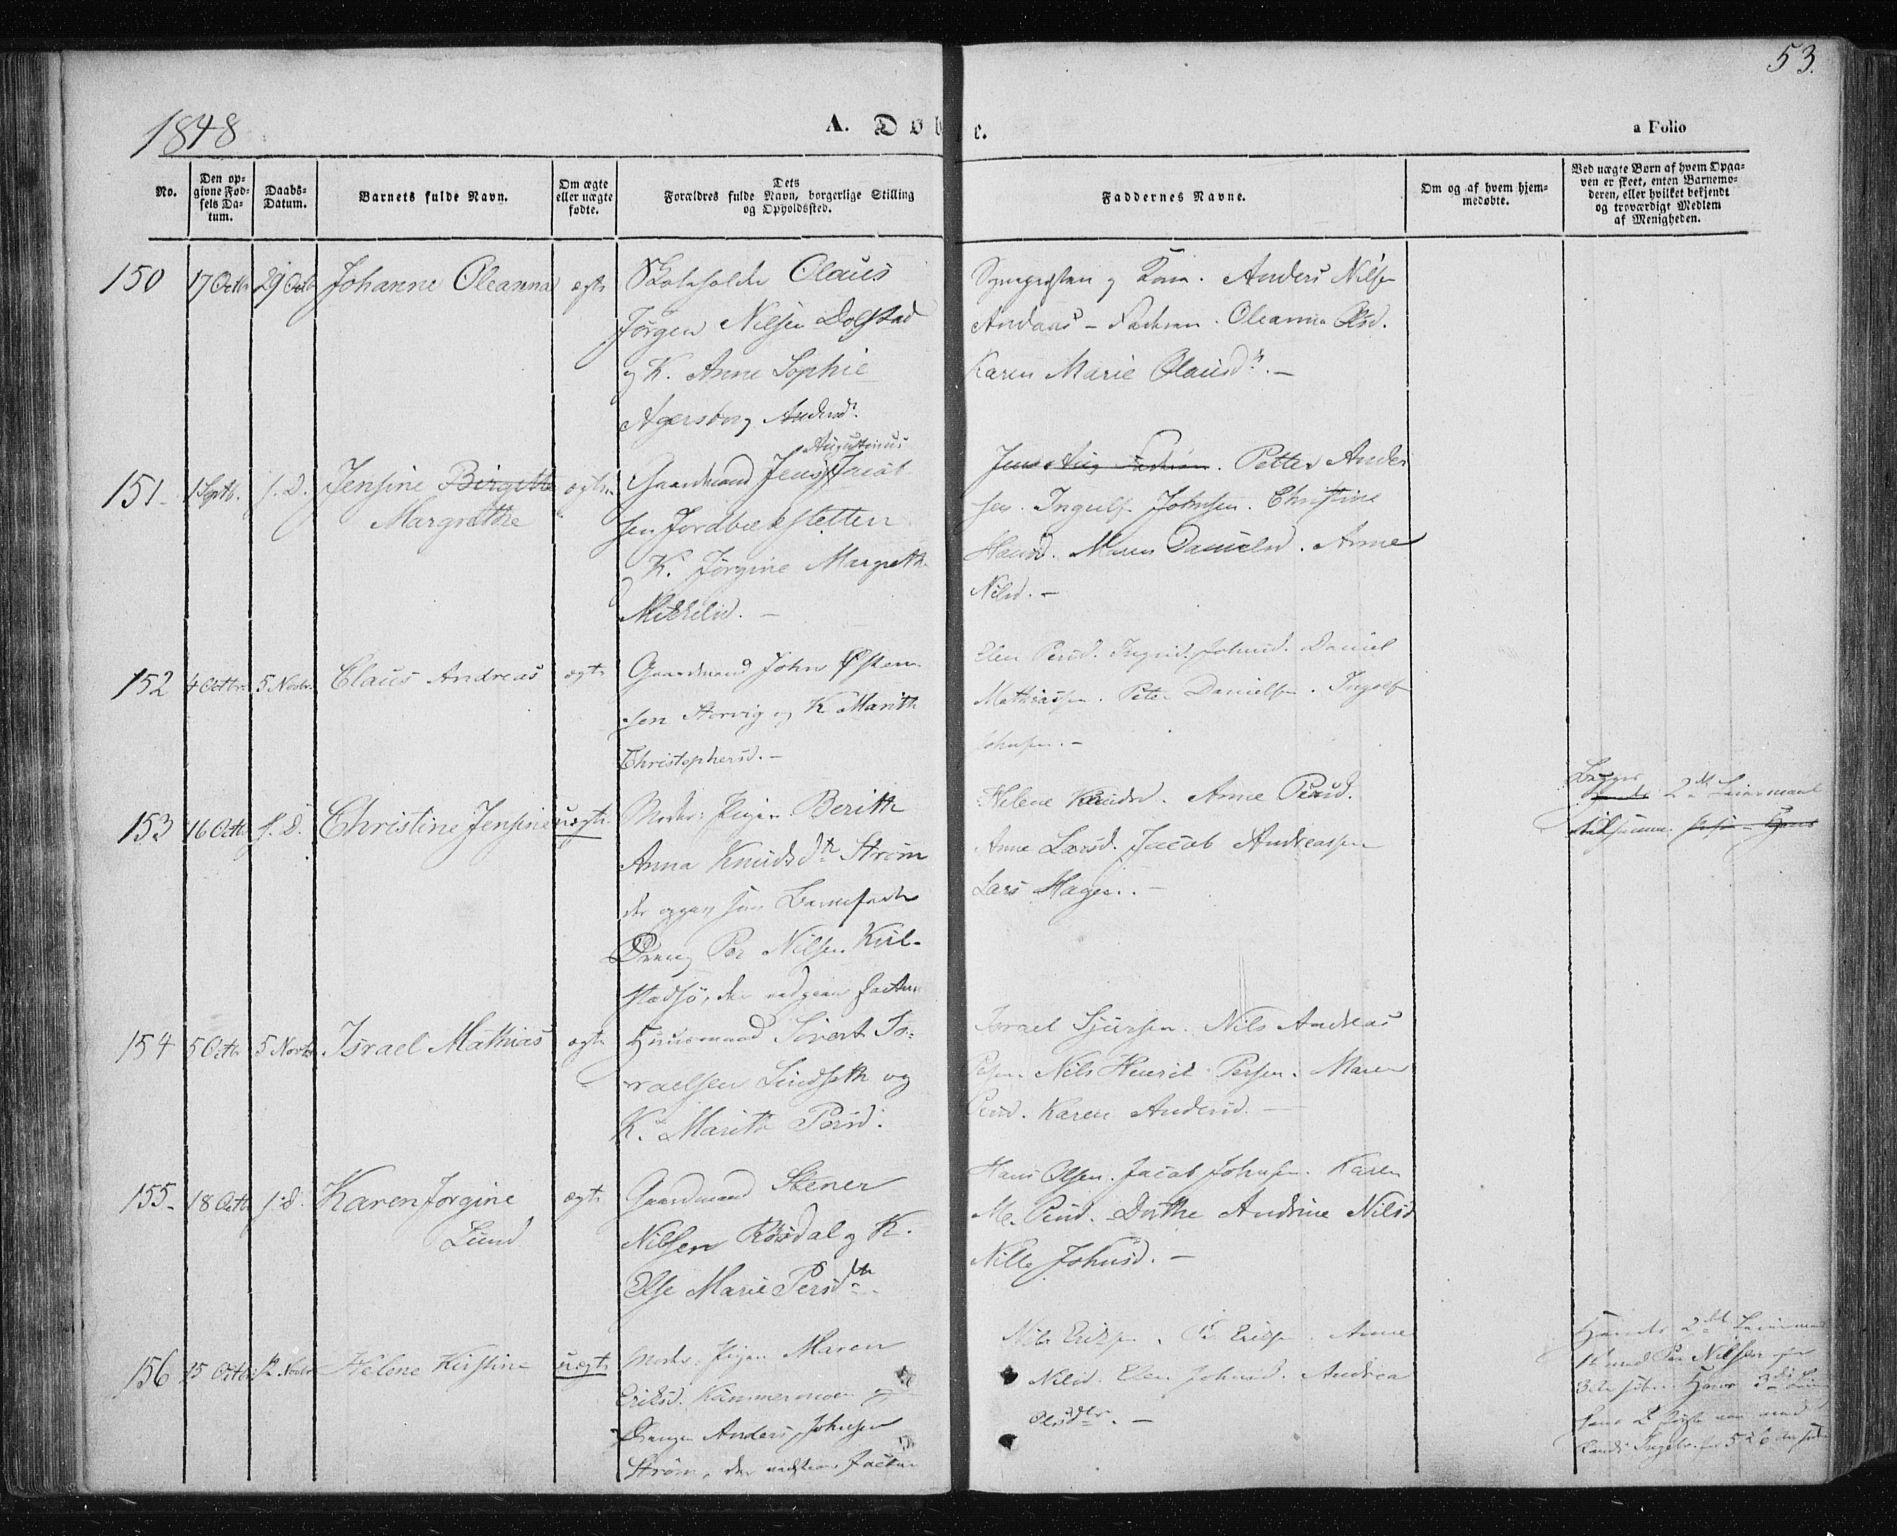 53.
1848
A. Døbte.
a Folio
No.
Den op-
givne Fød-
sels Da-
tum.
Daabs-
Datum.
Barnets fulde Navn.
Om ægte
eller uægte
fødte.
Dets
Forældres fulde Navn, borgerlige Stilling
og Opholdssted.
Faddernes Navne.
Om og af hvem hjem-
medøbte.
Ved uægte Børn af hvem Opga-
ven er skeet, enten Barnemo-
deren, eller hvilket bekjendt
og troværdigt Medlem
af Menigheden.
150 17 Octb 29 Octb Johanne Oleanna ægte Skoleholder Olaus
Jørgen Nilsen Dolstad
og K. Anne Sophie
Agersborg Andersd.
og Kone. Anders Nilsen
Oleanna Olsd.
Karen Marie Olausdtr. –
151 1 Septb. s. D. Jensine Birgitte ægte Gaardmand Jens Augustinus Jacob
Margrethe
sen Jordbækstetten
K. Jørgine Margreth
Mikkelsd. –
Jens Aug. Petter Ander
sen. Ingulf Johnsen. Christine
Hansd. Maren Danielsd. Anne
Nilsd. –
152 4 Octbr 5 Novbr. Claus Andreas ægte Gaardmand John Østen-
sen Storvig og K Marith
Christophersd. –
Elen Persd. Ingrid Johnsd. Daniel
Mathiassen. Peter Danielsen. Ingolf
Johnsen. –
153 16 Octb s. D. Christine Jensine uægte Moder: Pigen Berith
Anna Knudsdtr Strøm
der opgav som Barnefader
Dreng Per Nilsen Kul-
stadsjø, der vedgaar Factum
Helene Knudsd. Anne Persd.
Anne Larsd. Jacob Andreassen
Lars Hagen. –
Begges 2det Leiermaal
154 5 Octbr 5 Novbr Israel Mathias ægte Huusmand Sivert Is-
raelsen Lindseth og
K. Marith Persd.
Israel Sjursen. Nils Andreas
Persen. Nils Henrik Persen. Maren
Persd. Karen Andersd. –
155. 18 Octb s. D. Karen Jørgine ægte Gaardmand Stener
Lund
Nilsen Røsdal og K.
Else Marie Persdtr.
Hans Olsen. Jacob Johnsen. Karen
M. Persd. Dorthe Andrine Nilsd
Nille Johnsd. –
156 15 Octbr Novbr Helene Kirstine uægte Moder: Pigen Maren
Eriksd. Kammermoen og
Drengen Anders Johnsen
Strøm, der vedstaar factum
Nils Eriksen. Per Eriksen. Anne
Nilsd. Elen Johnsd. Andrea
Olsdtr. –
Hendes 2det Leiermaal
1ste med Per Nilsen
Hans 3die